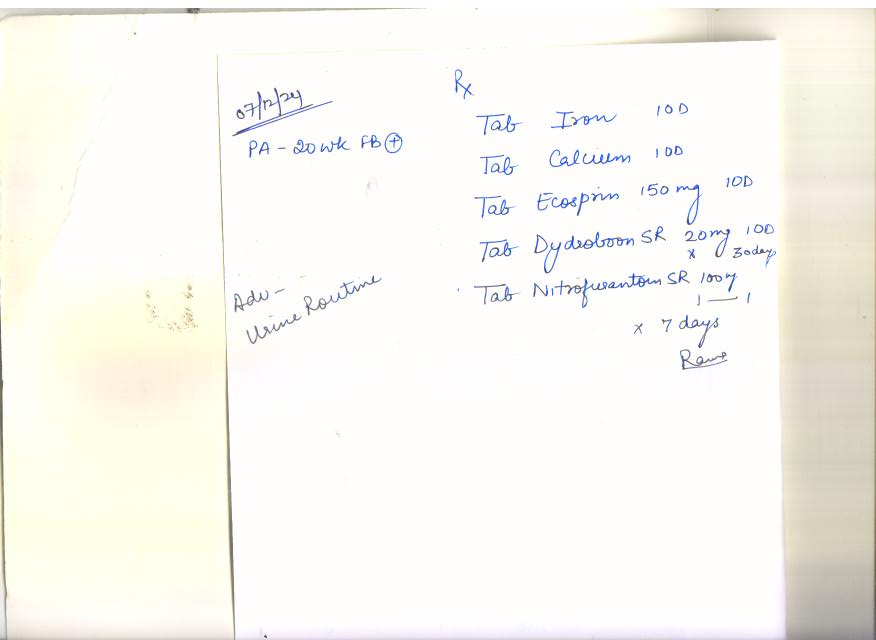 07/12/24
PA - 20 wk FB ⊕
Adv -
Urine Routine
Rx
Tab Iron 1OD
Tab Calcium 1OD
Tab Ecosprin 150 mg 1OD
Tab Dydroboon SR 20mg 1OD
x 30days
Tab Nitrofurantoin SR 100mg
1 — 1
x 7 days